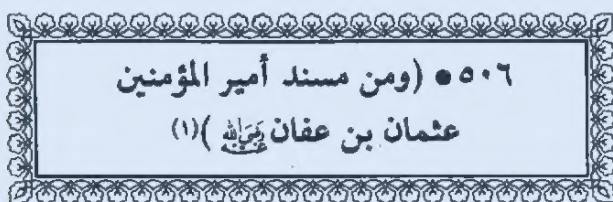 ٥٠٦ • (ومن مسند أمير المؤمنين
عثمان بن عفان رضي الله عنه )(١)